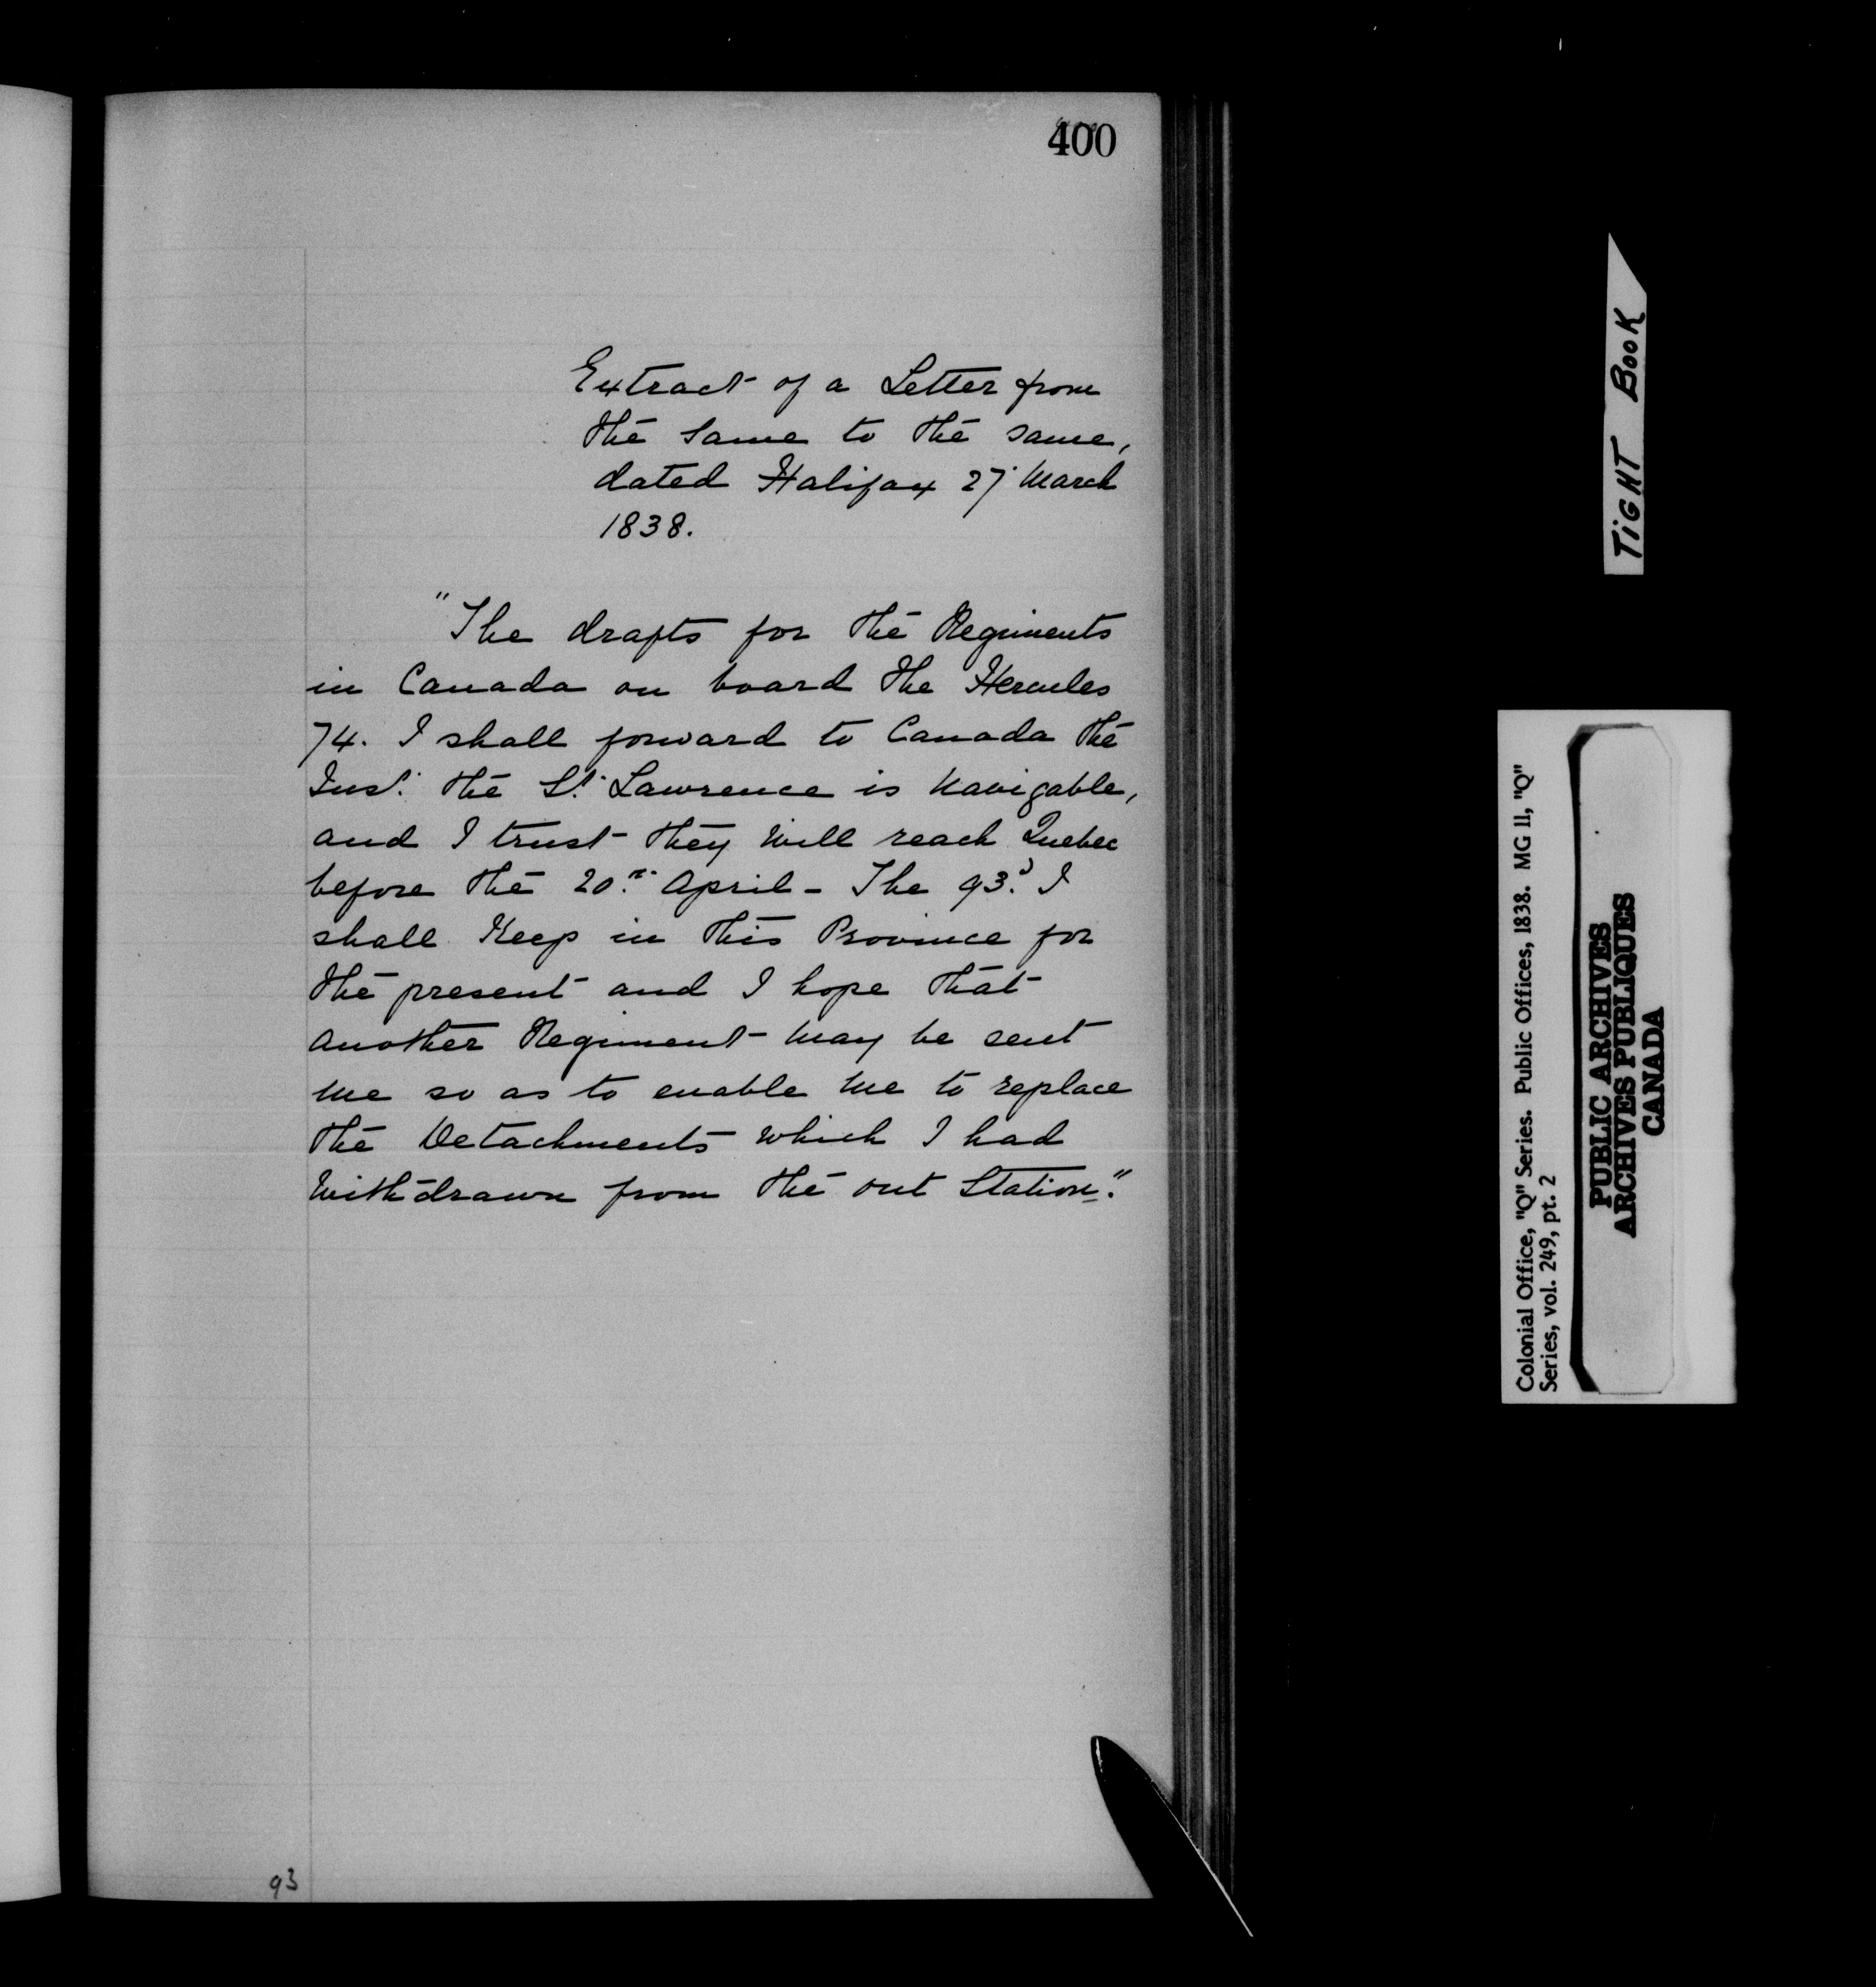 400
Extract of a Letter from
the same to the same,
dated Halifax 27 March
1838.
"The drafts for the Regiments
in Canada on board the Hercules
74. I shall forward to Canada the
Inst. the St. Lawrence is navigable,
and I trust they will reach Quebec
before the 20th April - The 93d I
shall Keep in this Province for
the present and I hope that
another Regiment may be sent
me so as to enable me to replace
the Detachments which I had
withdrawn from the out Station."
93
TIGHT BOOK
Colonial Office, "Q" Series. Public Offices, 1838. MG 11, "Q"
Series, vol. 249, pt. 2
PUBLIC ARCHIVES
ARCHIVES PUBLIQUES
CANADA